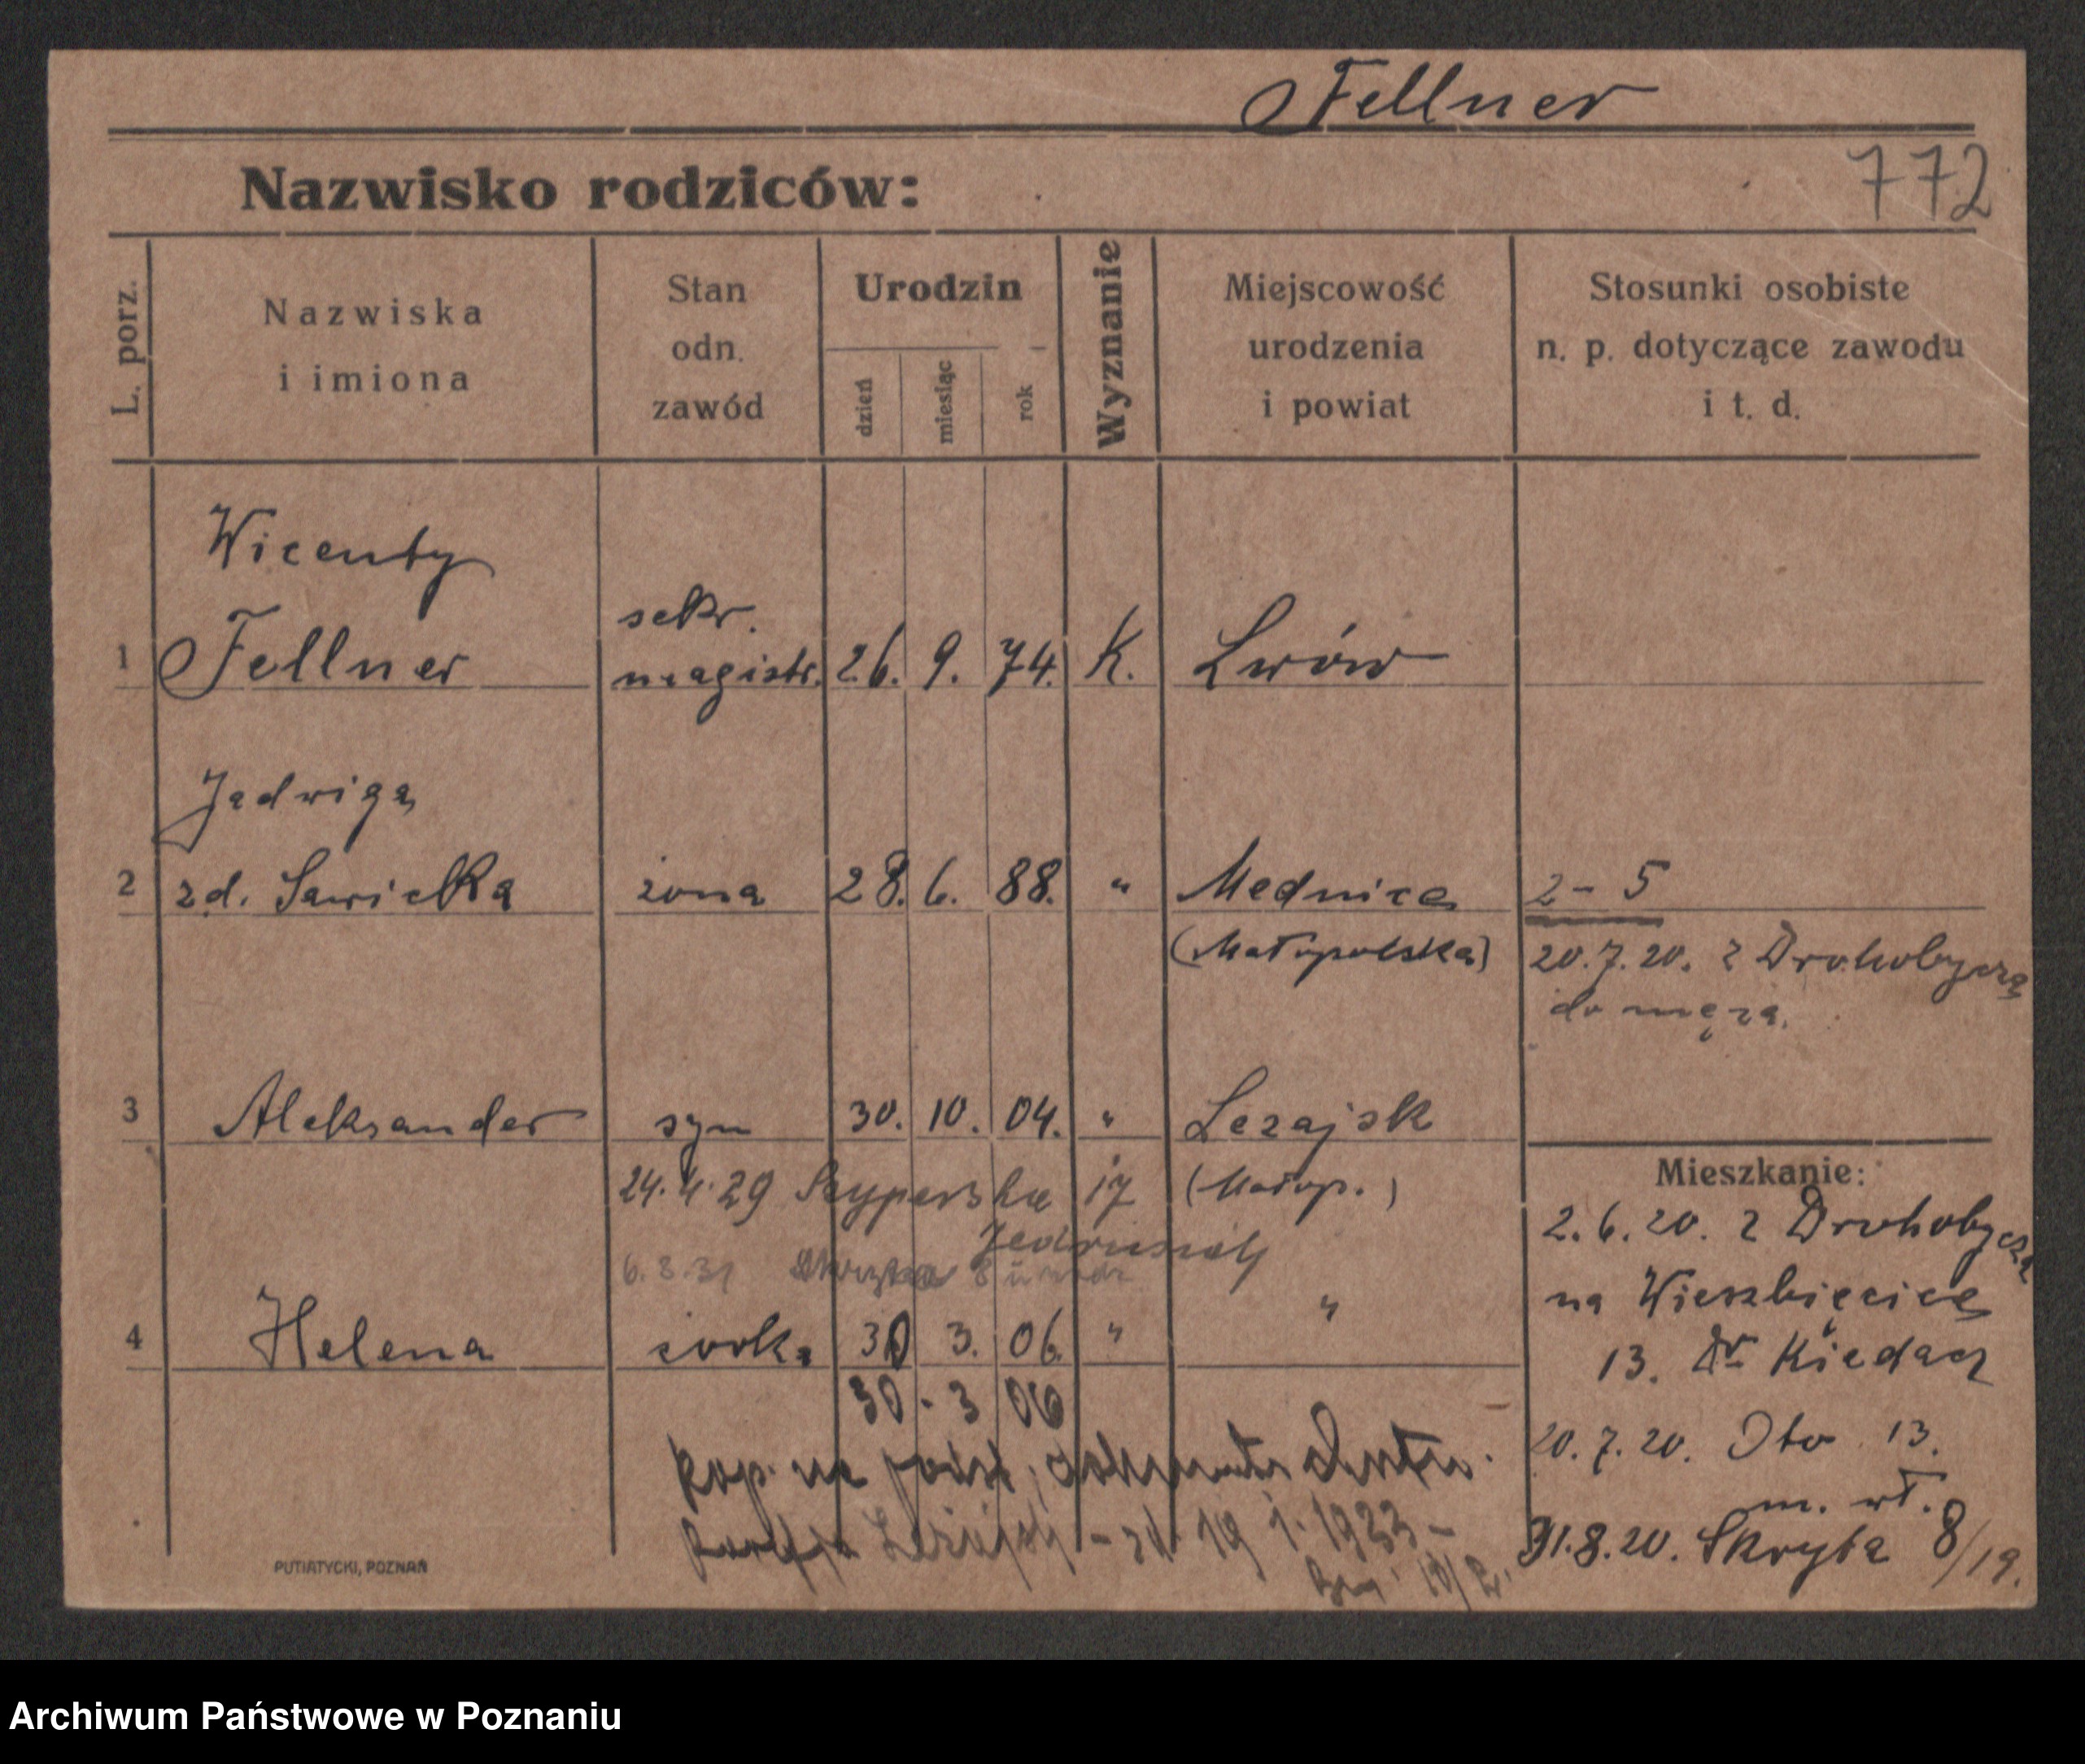 Fellner
Nazwisko rodziców:
772
L. porz.
Nazwiska
i imiona
Stan
odn.
zawód
Urodzin
dzień
miesiąc
rok
Wyznanie
Miejscowość
urodzenia
i powiat
Stosunki osobiste
n. p. dotyczące zawodu
i t. d.
Wicenty
sekr.
1 Fellner magistr. 26. 9. 74. K. Lwów
Jadwiga
2 zd. Sawicka żona 28. 6. 88. " Mednice 2 - 5
(Małopolska) 20.7.20. z Drohobycza
do męża.
3 Aleksander syn 30. 10. 04. " Lezajsk
24.4.29 Szyperska 17 (Małop.)
6.8.31 8
4 Helena córka 30 3. 06. " "
30 - 3 06
na dokumentu
Leżajsk - 19 1. 1933 -
Mieszkanie:
2.6.20. z Drohobycza
na Wierzbięcice
13. Dr Kiedacz
20.7.20. Oto 13.
m. wł.
31.8.20. Skryta 8/19.
PUTIATYCKI, POZNAŃ
Archiwum Państwowe w Poznaniu